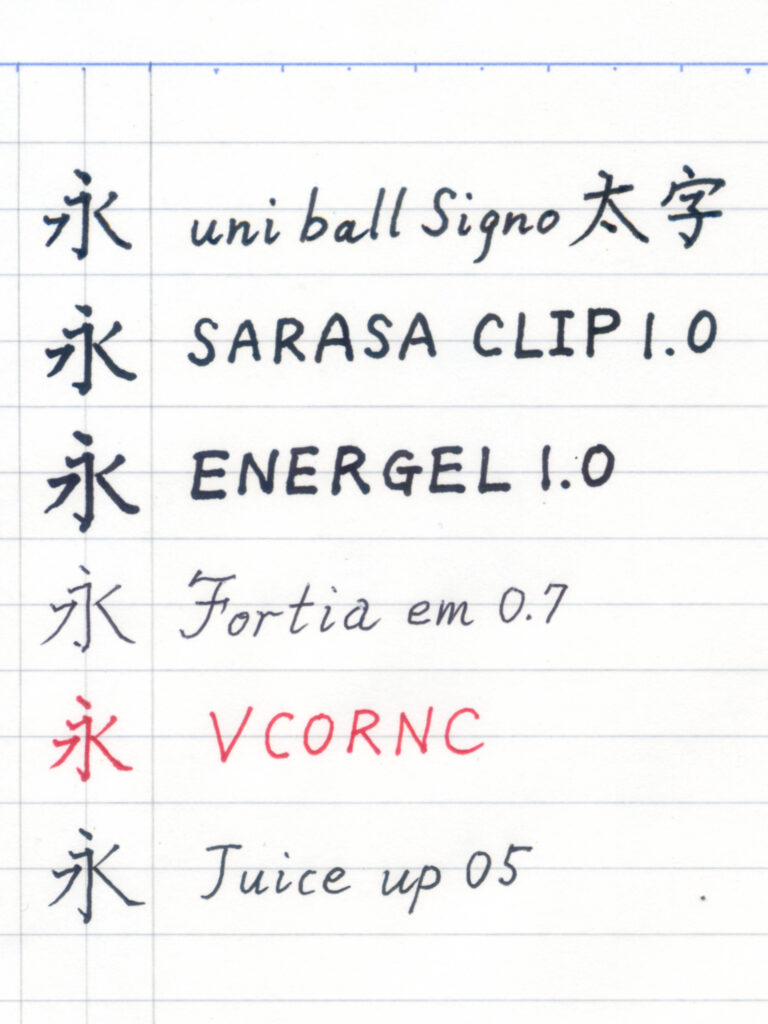 永 uni ball Signo 太字
永 SARASA CLIP 1.0
永 ENERGEL 1.0
永 Fortia em 0.7
永 VCORNC
永 Juice up 05